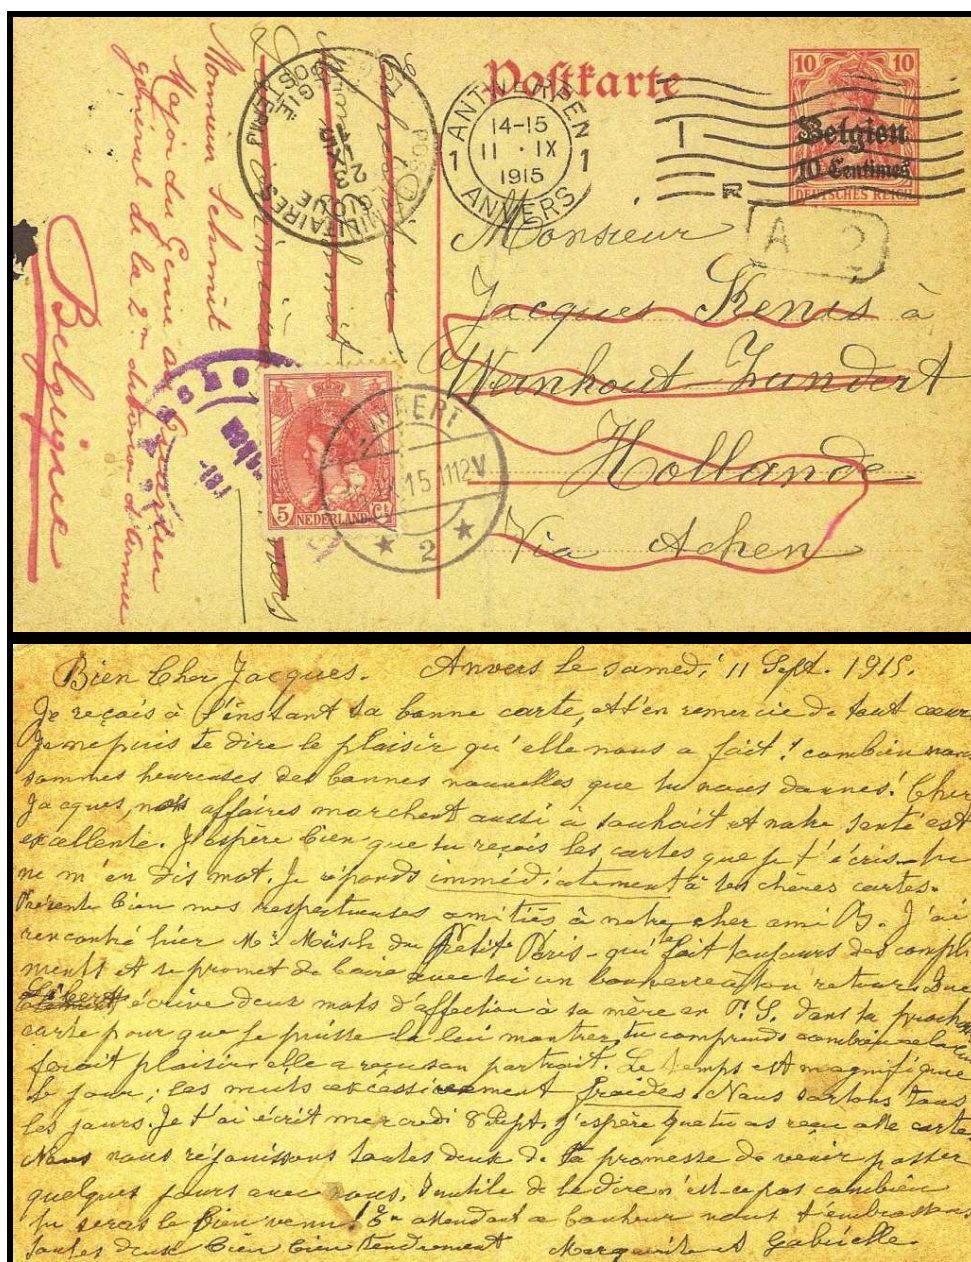 Postkarte
10 10
Belgien
10 Centimes
DEUTSCHES REICH
1 ANTWERPEN 1
14-15
11 · IX
1915
ANVERS
A 2
Monsieur
Jacques Kenis à
Wernhout-Zundert
Hollande
Via Achen
Monsieur Schmit
Major du Génie au
général de la 2me division d'armée
Belgique
MILITAIRES
5 NEDERLAND Ct
15 1112V
2
Bien Cher Jacques. Anvers le samedi 11 Sept. 1915.
Je reçois à l'instant ta bonne carte, et t'en remercie de tout cœur
Je ne puis te dire le plaisir qu'elle nous a fait! combien nous
sommes heureuses des bonnes nouvelles que tu nous donnes! Cher
Jacques, nos affaires marchent aussi à souhait et notre santé est
excellente. J'espère bien que tu reçois les cartes que je t'écris - tu
ne m'en dis mot. Je réponds immédiatement à tes chères cartes.
Présente bien mes respectueuses amitiés à notre cher ami B. J'ai
rencontré hier Mr du Petit Paris - qui te fait toujours des compli
ments et se promet de boire avec toi un bon verre à ton retour. Que
écrive deux mots d'affection à sa mère en P.S. dans ta prochaine
carte pour que je puisse la lui montrer, tu comprends combien cela lui
ferait plaisir elle a reçu son portrait. Le temps est magnifique
le jour; les nuits excessivement froides. Nous sortons tous
les jours. Je t'ai écrit mercredi 8 Sept. j'espère que tu as reçu cette carte
Nous nous réjouissons toutes deux de ta promesse de venir passer
quelques jours avec nous. Inutile de te dire n'est-ce pas combien
tu seras le bien venu! En attendant ce bonheur nous t'embrassons
toutes deux bien bien tendrement Marguerite et Gabrielle.